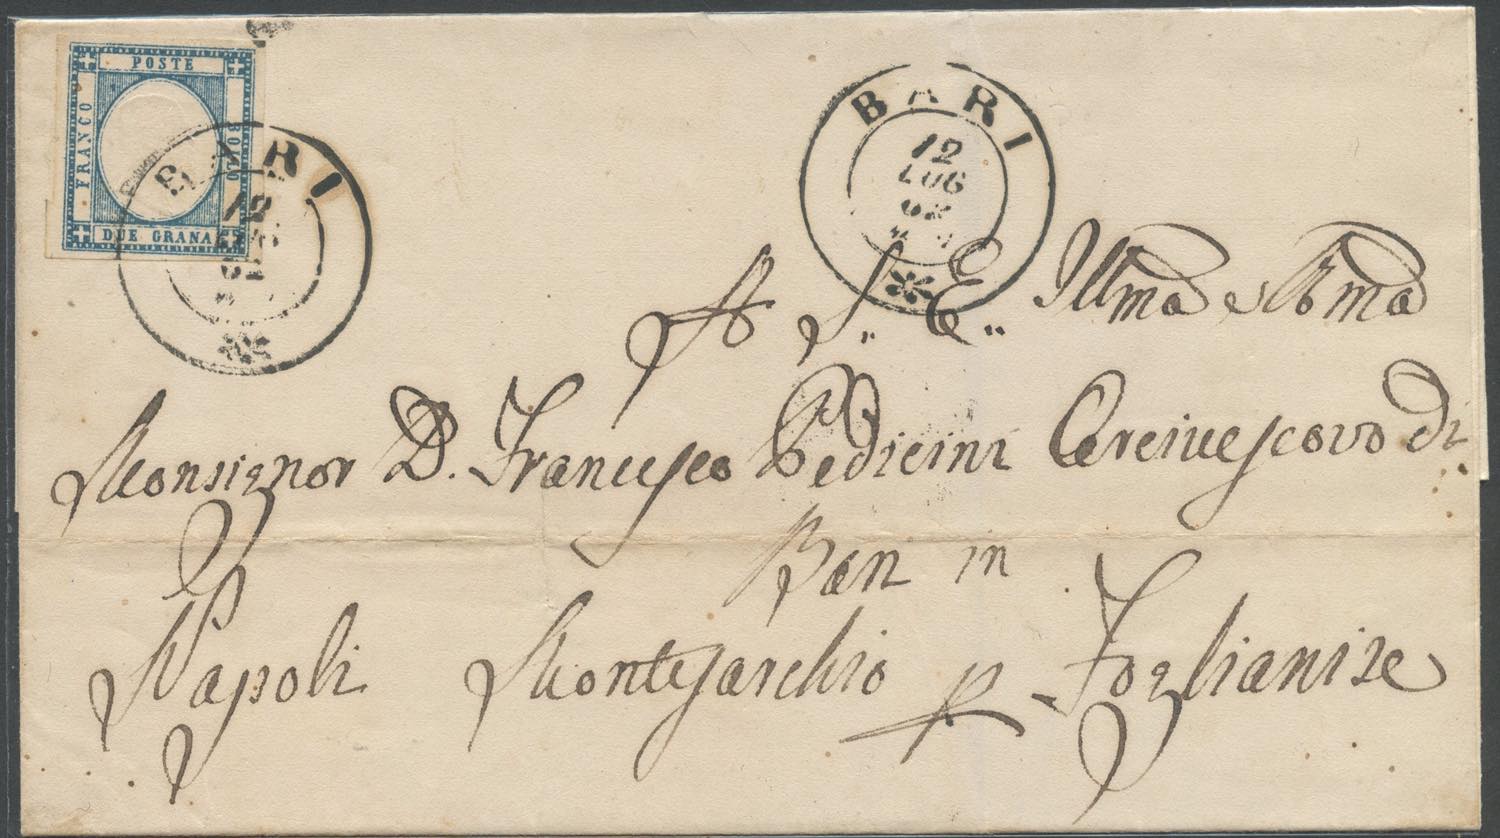 POSTE
FRANCO
BOLLO
DUE GRANA
BARI
12
LUG
62
BARI
12
LUG
62
A S. E. Illma e Rma
Monsignor D. Francesco Pedicini Arcivescovo di
Bari in
Napoli Montesarchio p. Foglianise